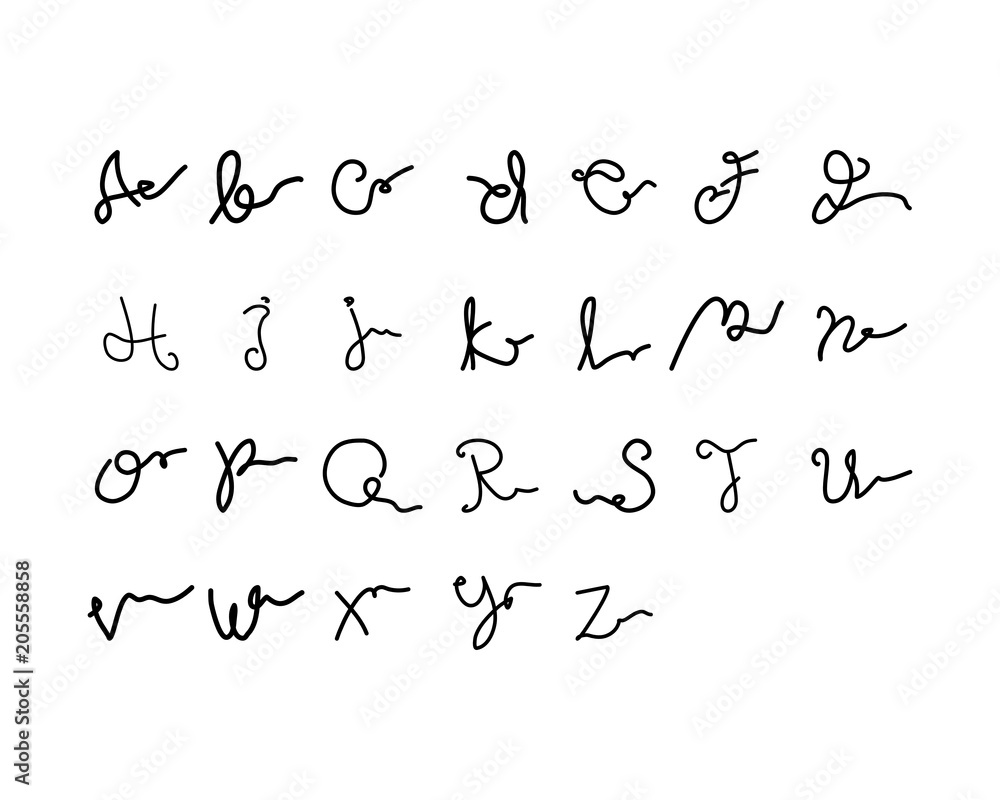 A b C d e F G
H I j k l m n
o p Q R S T U
v w x y z
Adobe Stock | #205558858